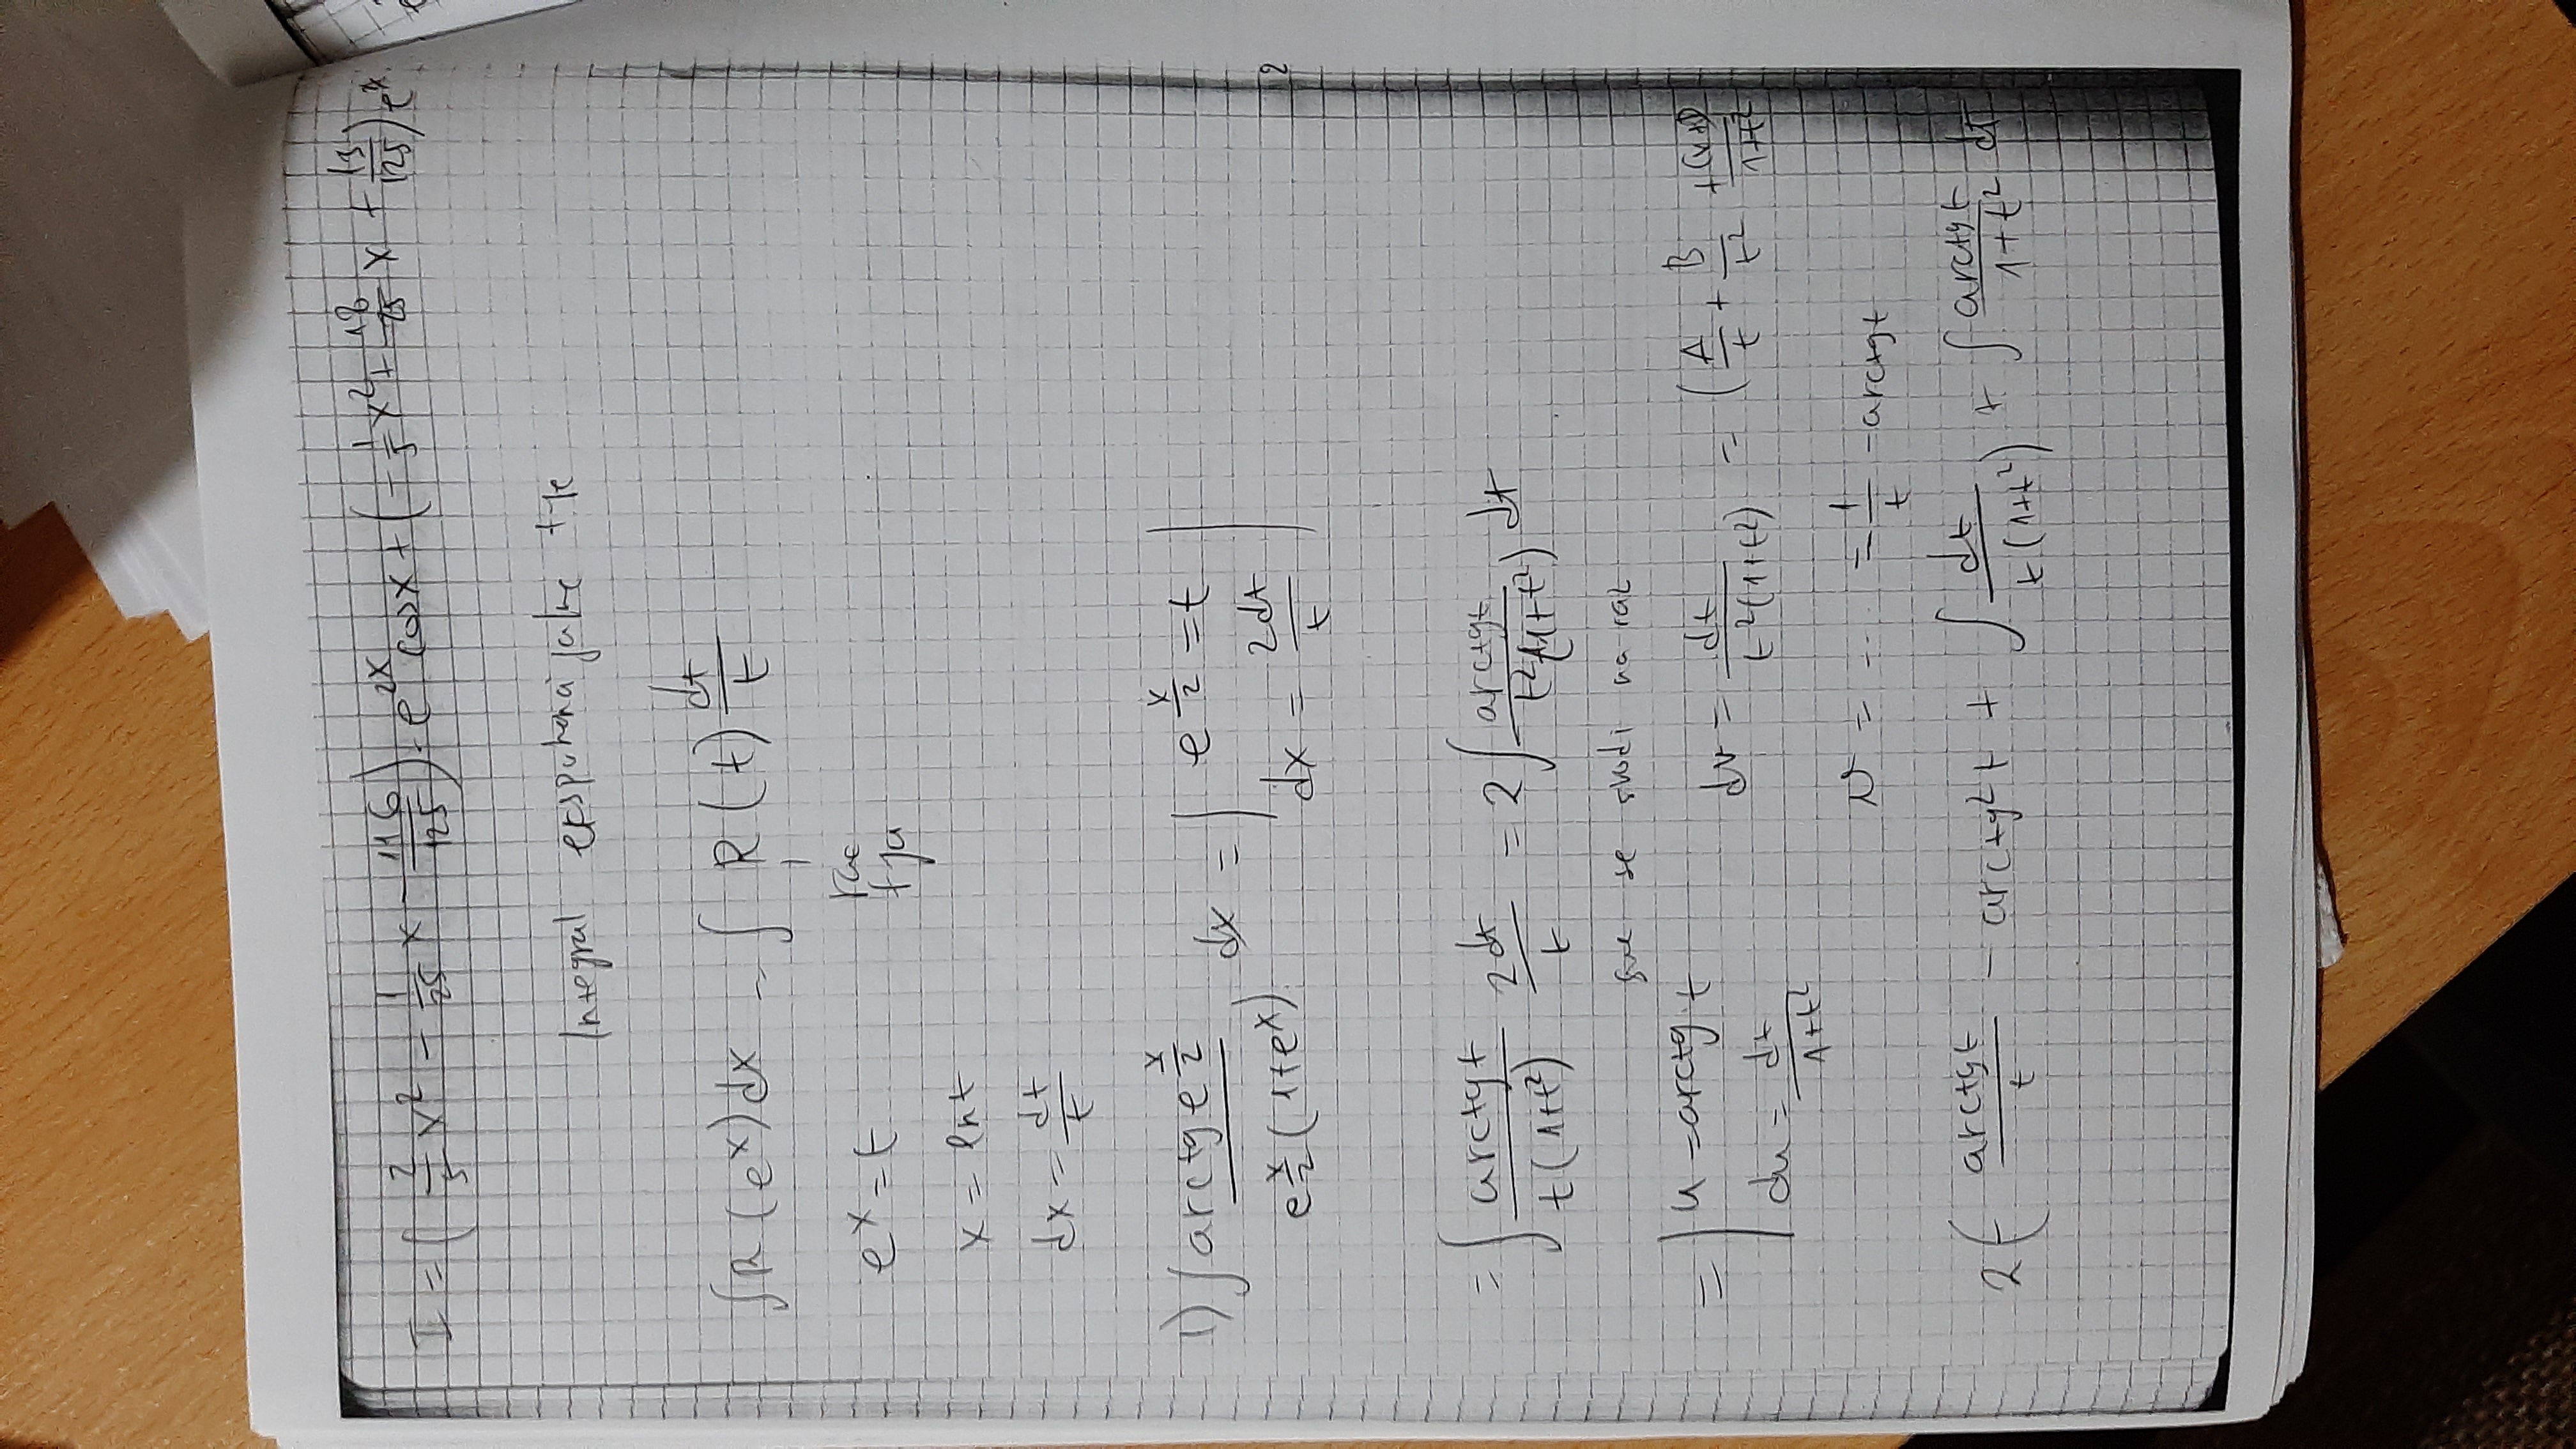 I = ( 2/5 x² - 1/25 x - 116/125 ) · e^2x cosx + ( - 1/5 x² + 18/25 x + 13/125 ) e^x
Integral
∫R (e^x) dx = ∫ R (t) dt/t
e^x = t
rac
fja
x = ln t
dx = dt/t
1) ∫ arctg e^(x/2) / e^(x/2) (1+e^x) dx = | e^(x/2) = t
dx = 2dt/t |
= ∫ arctg t / t(1+t²) 2dt/t = 2 ∫ arctg t / t²(1+t²) dt
sve se svodi na rac
= | u = arctg t dv = dt / t²(1+t²) = ( A/t + B/t² + Cx+D / 1+t²
du = dt / 1+t²
v = ... = 1/t - arctg t
2 ( - arctg t / t - arctg² t + ∫ dt / t(1+t²) ) + ∫ arctg t / 1+t² dt
2